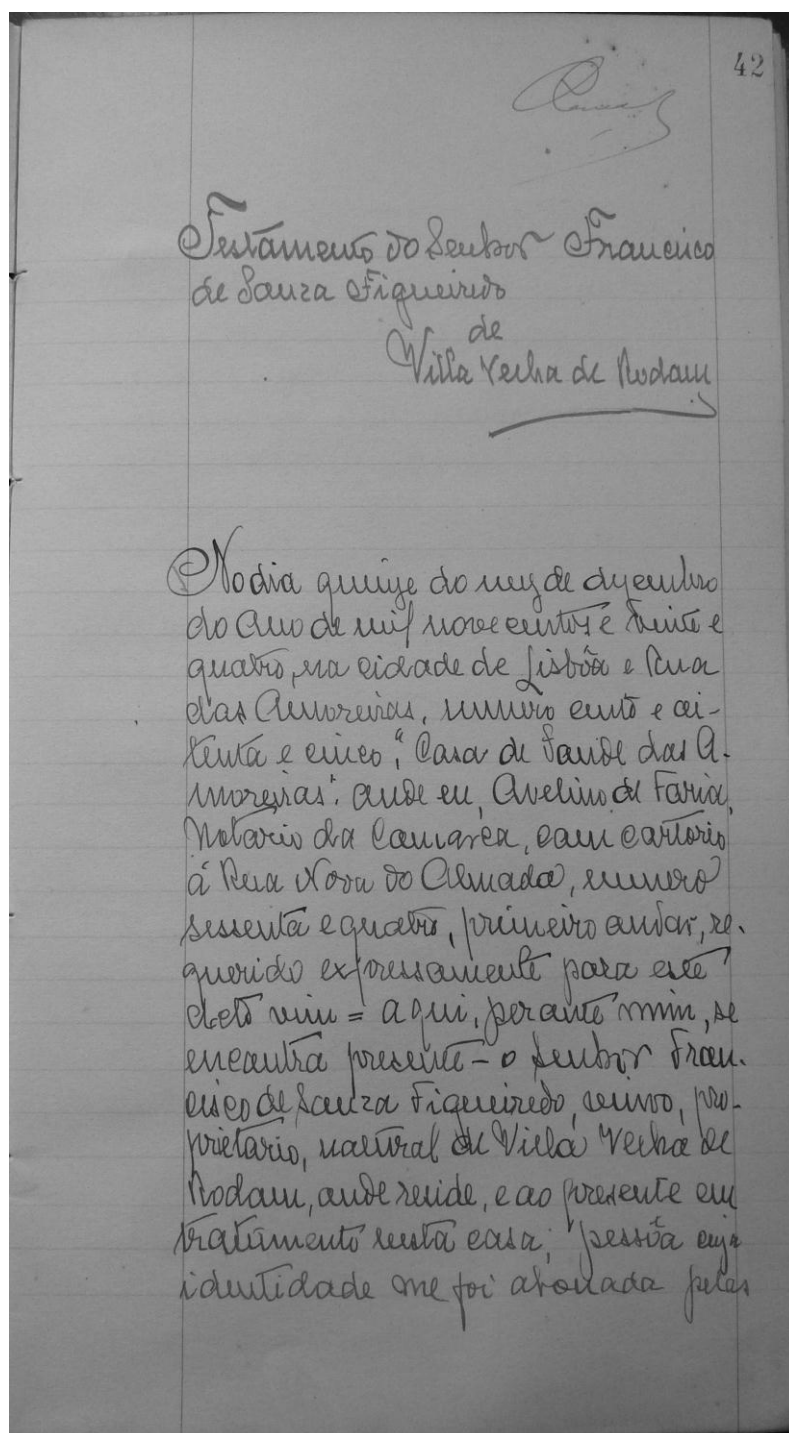 42
Testamento do Senhor Francisco
de Souza Figueiredo
de
Villa Velha de Rodam
No dia quinze do mez de dezembro
do Ano de mil novecentos e trinta e
quatro, na cidade de Lisbôa e Rua
das Amoreiras, numero cento e oi-
tenta e cinco, "Casa de Saude das A-
moreiras". onde eu, Avelino de Faria,
Notario da Comarca, com cartorio
á Rua Nova do Almada, numero
sessenta e quatro, primeiro andar, re-
querido expressamente para este
acto vim = aqui, perante mim, se
encontra presente - o Senhor Fran-
cisco de Souza Figueiredo, viuvo, pro-
prietario, natural de Villa Velha de
Rodam, onde reside, e ao presente em
tratamento nesta casa; pessôa cuja
identidade me foi abonada pelas